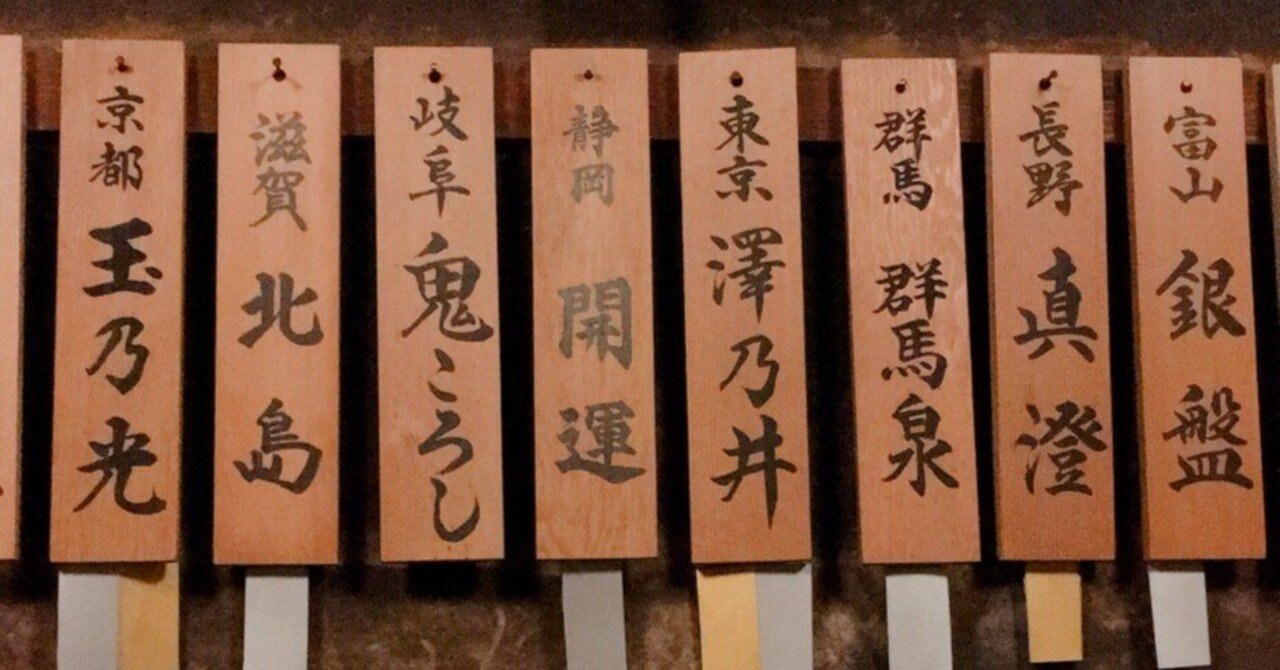 富山 銀盤
長野 真澄
群馬 群馬泉
東京 澤乃井
静岡 開運
岐阜 鬼ころし
滋賀 北島
京都 玉乃光